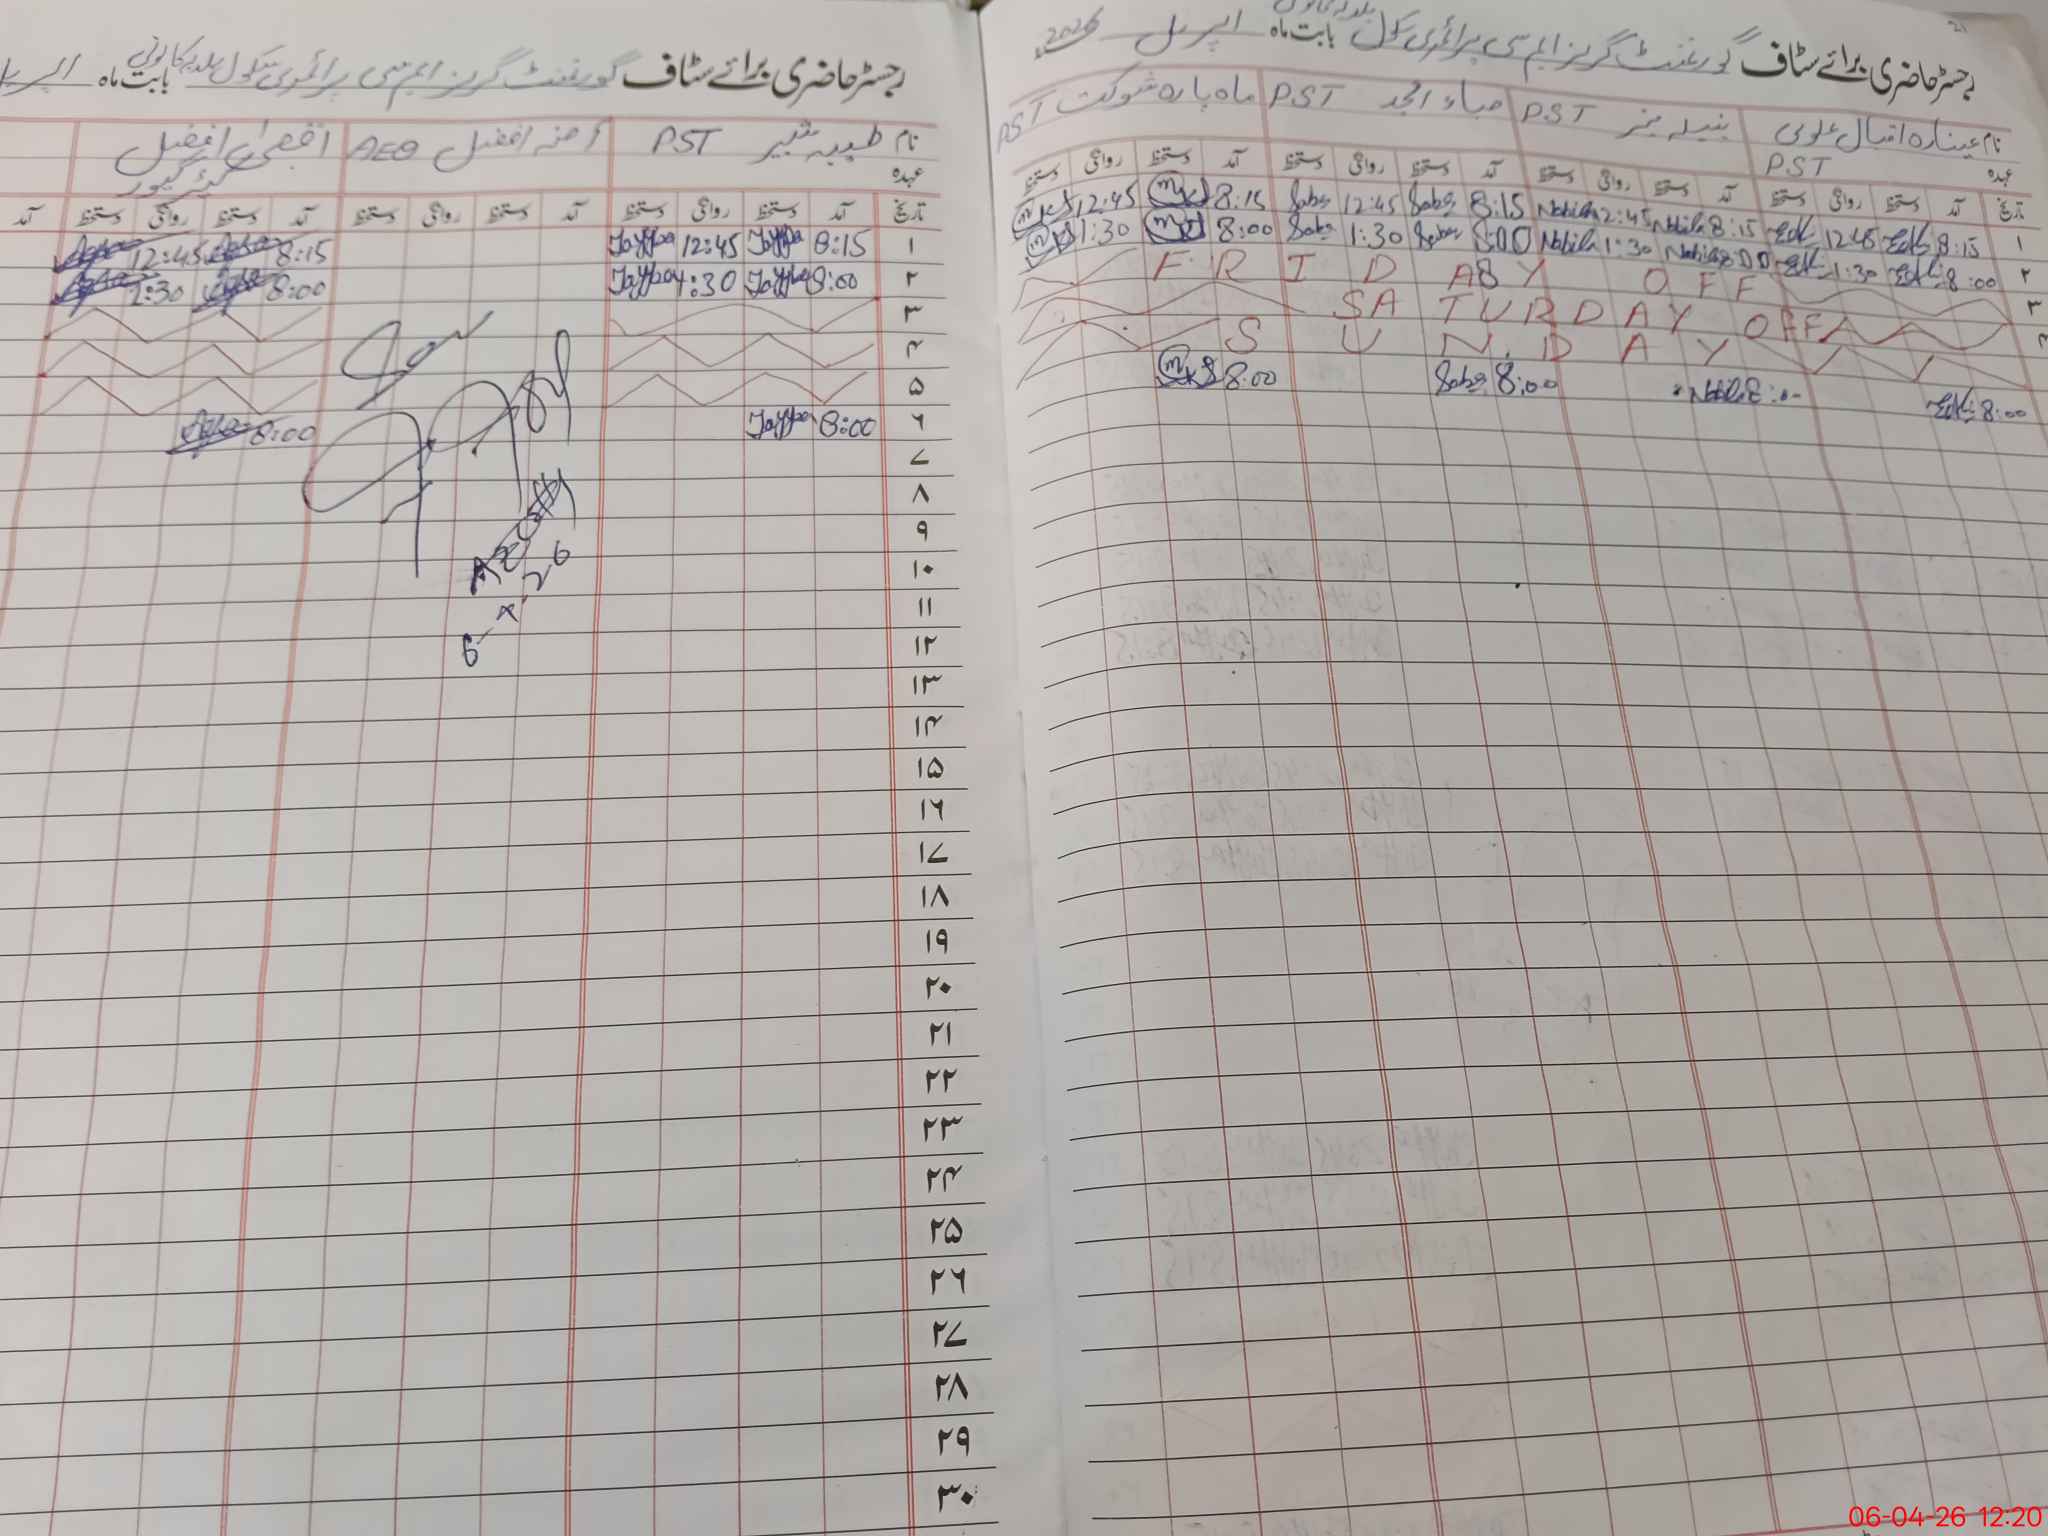 رجسٹر حاضری برائے سٹاف گورنمنٹ گرلز ایم سی پرائمری سکول بلدیہ کالونی بابت ماہ اپریل 2026
21
نام عہدہ PST صباء امجد PST ماہ پارہ شوکت PST PST
تاریخ آمد دستخط روانگی دستخط آمد دستخط روانگی دستخط آمد دستخط روانگی دستخط آمد دستخط روانگی دستخط
۱ 8:15 12:45 Nabila 8:15 Nabila 12:45 Saba 8:15 Saba 12:45 8:15 12:45
۲ 8:00 1:30 Nabila 8:00 Nabila 1:30 Saba 8:00 Saba 1:30 8:00 1:30
۳ FRIDAY OFF
۴ SATURDAY OFF
SUNDAY
8:00 Nabila 8:00 Saba 8:00 8:00
رجسٹر حاضری برائے سٹاف گورنمنٹ گرلز ایم سی پرائمری سکول بلدیہ کالونی بابت ماہ
نام طیبہ شبیر PST آمنہ افضل AEO اقصیٰ افضل
عہدہ کیئر گیور
تاریخ آمد دستخط روانگی دستخط آمد دستخط روانگی دستخط آمد دستخط روانگی دستخط آمد
۱ 8:15 Tayyba 12:45 Tayyba 8:15 Aqsa 12:45 Aqsa
۲ 8:00 Tayyba 1:30 Tayyba 8:00 Aqsa 1:30 Aqsa
۳
۴
۵
۶ 8:00 Tayyba 8:00 Aqsa
۷
۸
۹
۱۰
۱۱
۱۲
۱۳
۱۴
۱۵
۱۶
۱۷
۱۸
۱۹
۲۰
۲۱
۲۲
۲۳
۲۴
۲۵
۲۶
۲۷
۲۸
۲۹
۳۰
06-04-26 12:20